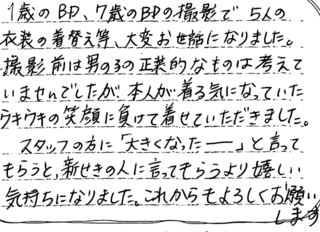 1歳のBD、7歳のBDの撮影で5人の
衣装の着替え等、大変お世話になりました。
撮影前は男の子の正装的なものは考えて
いませんでしたが、本人が着る気になっていた
ウキウキの笑顔に負けて着せていただきました。
スタッフの方に「大きくなったー」と言って
もらうと、新せきの人に言ってもらうより嬉しい
気持ちになりました。これからもよろしくお願い
します